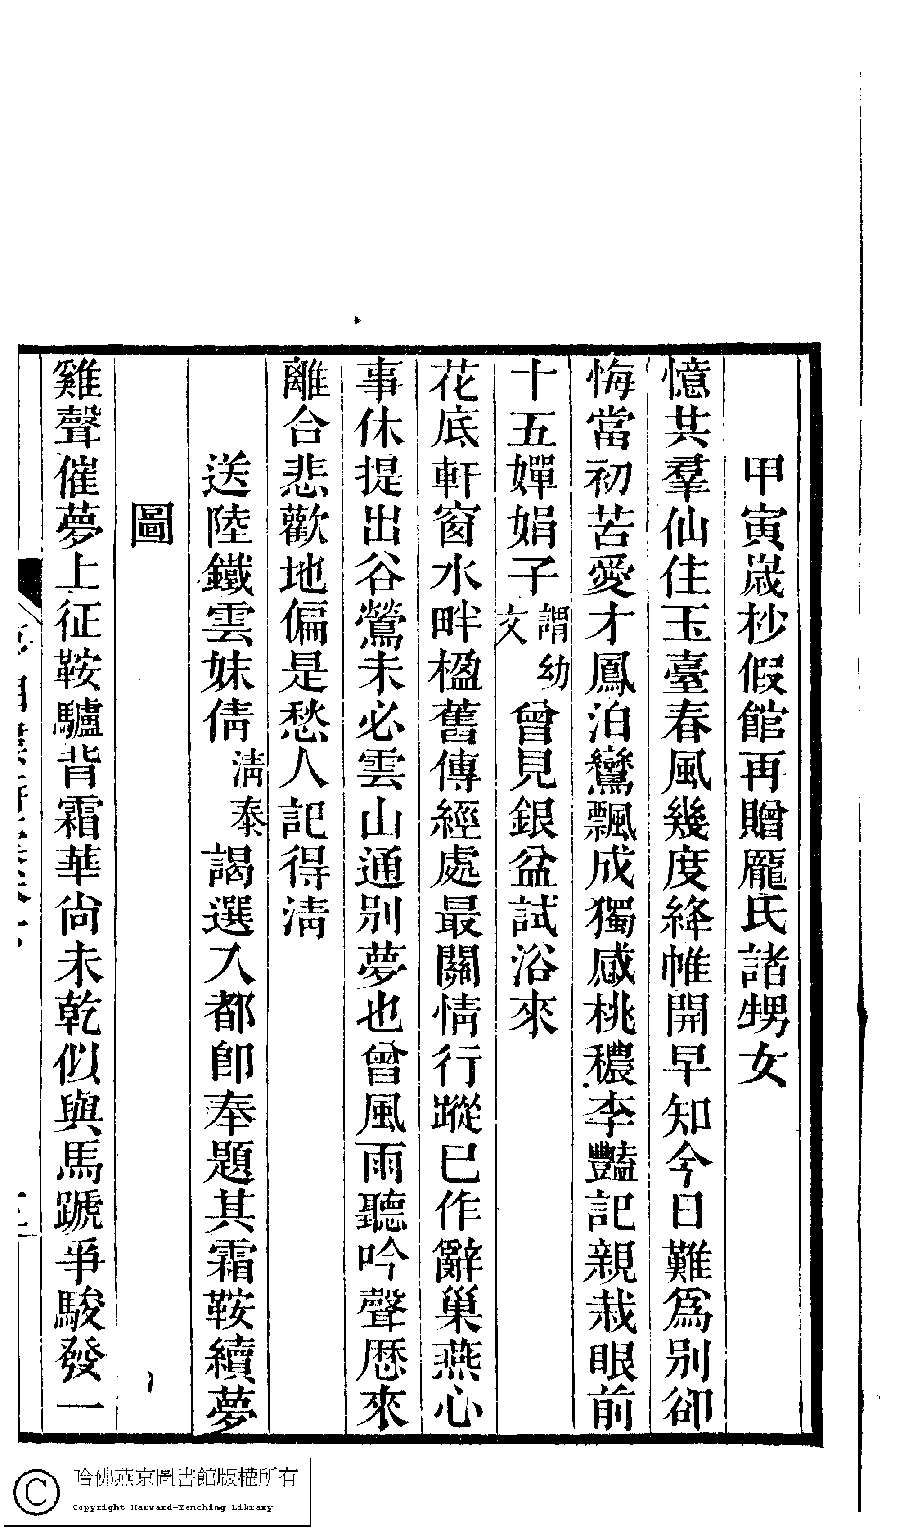 甲寅歲杪假館再贈龎氏諸甥女
憶共羣仙住玉臺春風幾度絳帷開早知今日難爲別卻
悔當初苦愛才鳳泊鸞飄成獨感桃穠李豔記親栽眼前
十五嬋娟子謂幼文曾見銀盆試浴來
花底軒窗水畔楹舊傳經處最關情行蹤已作辭巢燕心
事休提出谷鶯未必雲山通別夢也曾風雨聽吟聲歷來
離合悲歡地偏是愁人記得淸
送陸鐵雲妹倩淸泰謁選入都卽奉題其霜鞍續夢
圖
雞聲催夢上征鞍驢背霜華尙未乾似與馬蹏爭駿發一
哈佛燕京圖書館版權所有
Copyright Harvard-Yenching Library